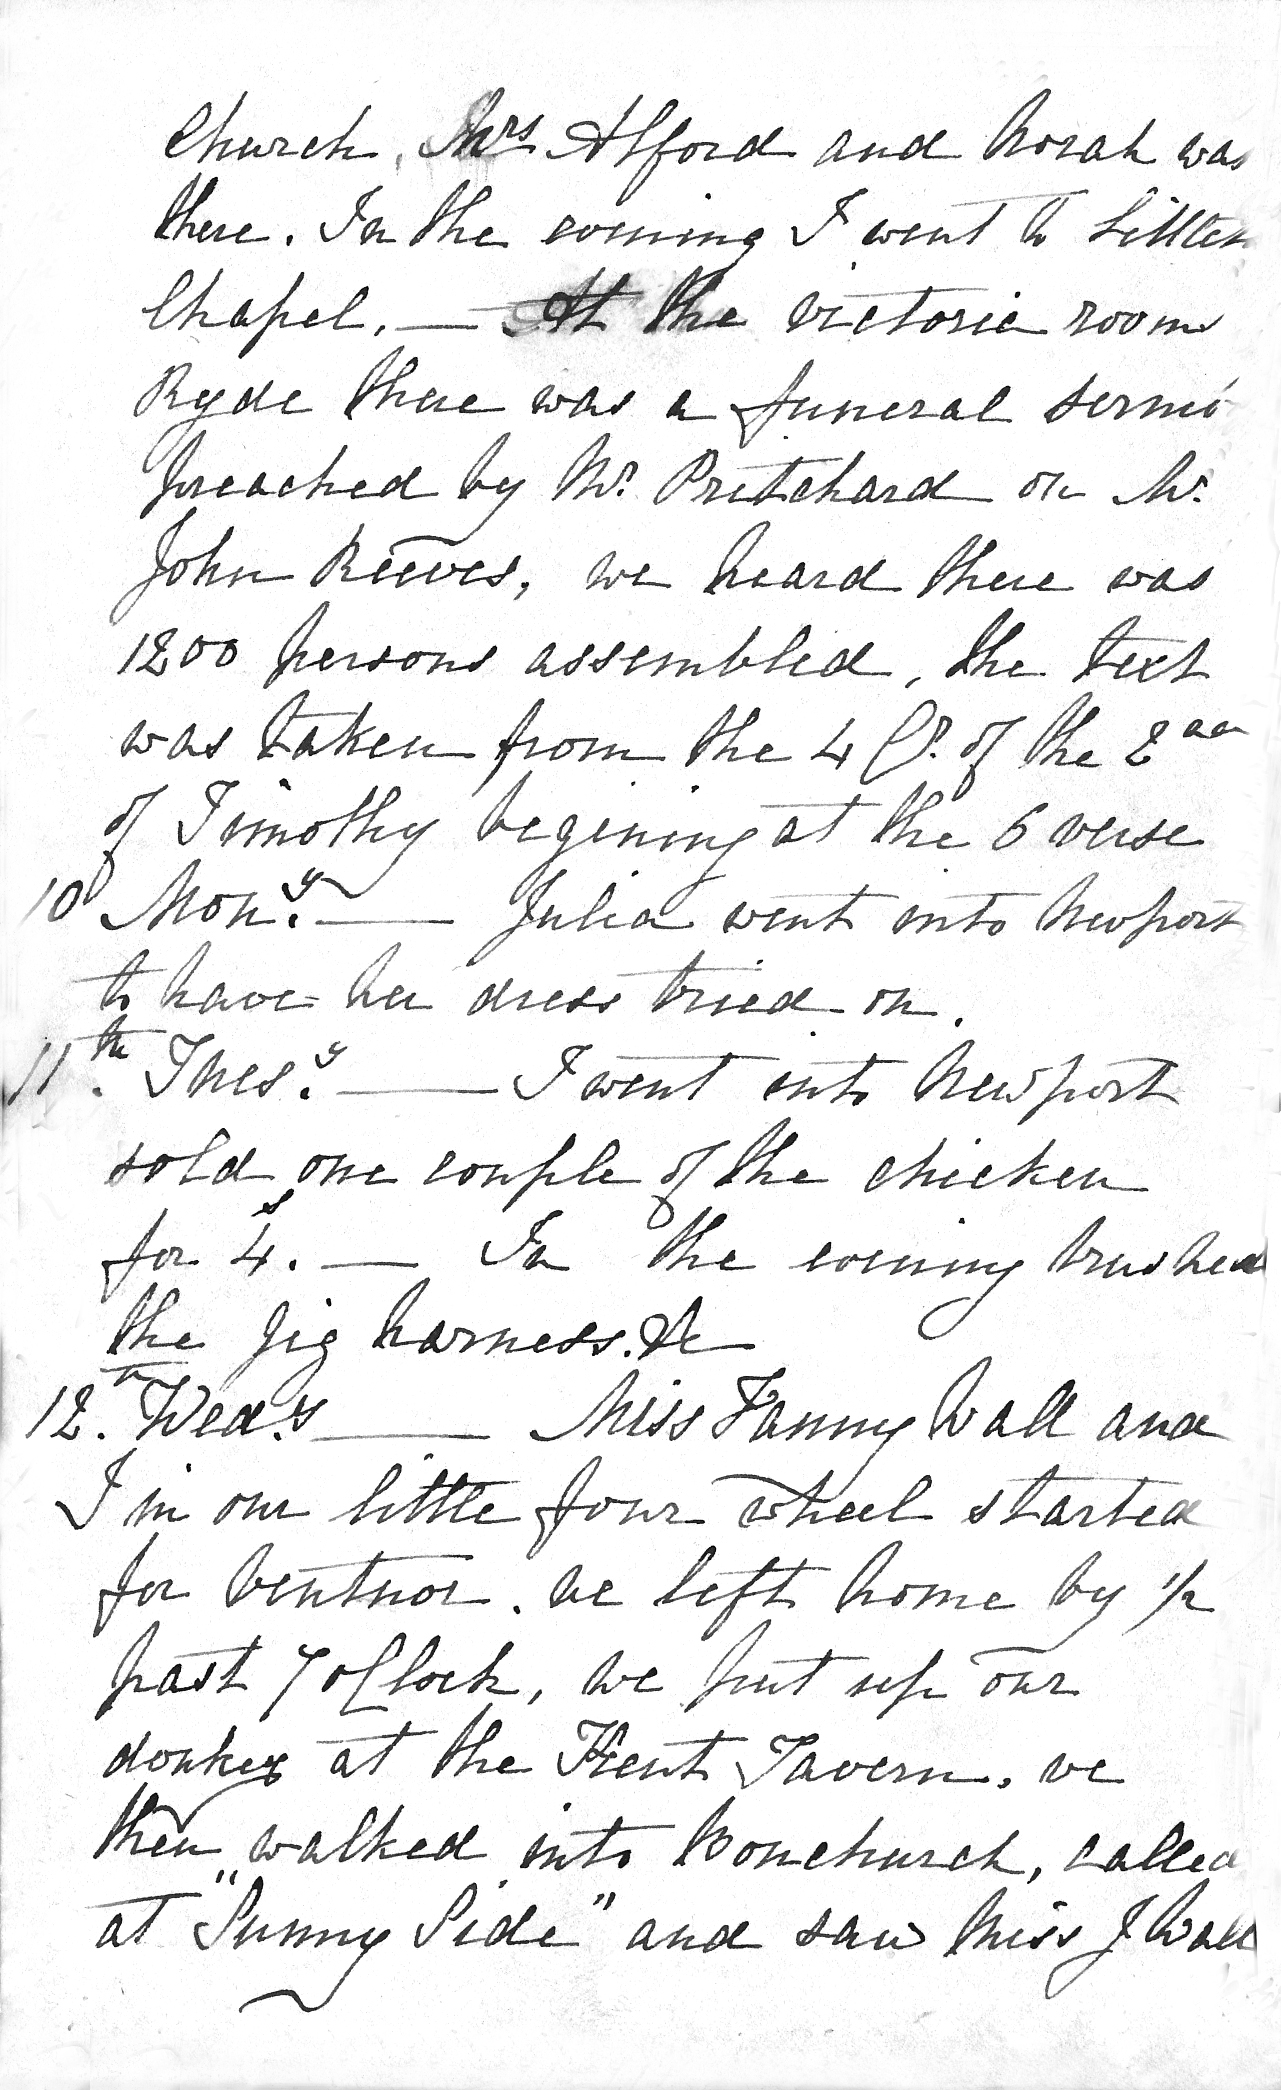 Church, Mrs Alford and Norah was
there. In the evening I went to Littleton
Chapel. — At the Victoria rooms
Ryde there was a funeral sermo
preached by Mr. Pritchard on Mr.
John Reeves, we heard there was
1200 persons assembled, the text
was taken from the 4 Cp. of the 2nd
of Timothy begining at the 6 verse
10 Mony. — Julia went into Newport
to have her dress tried on.
11th. Tuesy. — I went into Newport
sold one couple of the chicken
for 4s. — In the evening brushed
the Jig harness. &c
12th. Wedy. — Miss Fanny Wall and
I in our little four wheel started
for Ventnor. we left home by 1/2
past 7 oClock, we put up our
donkey at the Tavern. we
then walked into Bonchurch, called
at "Sunny Side" and saw Miss J Wall